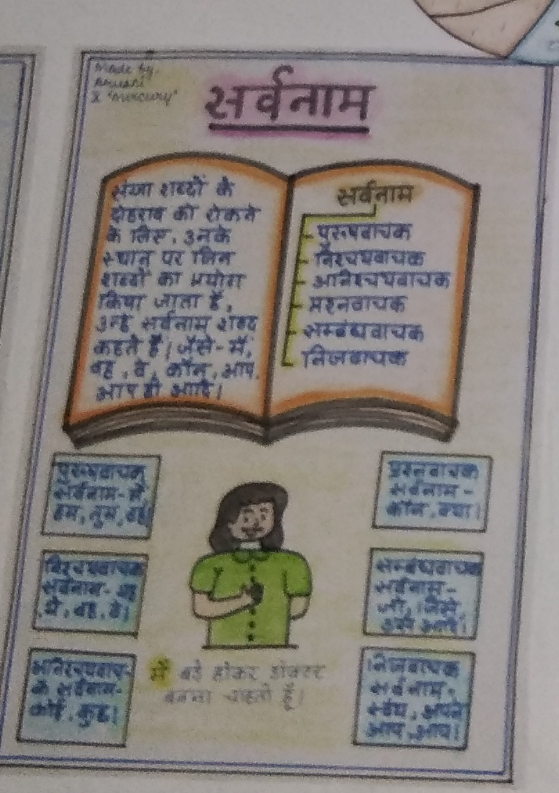 Made by-
X "Mercury"
सर्वनाम
संज्ञा शब्दों के
दोहराव को रोकने
के लिए, उनके
स्थान पर जिन
शब्दों का प्रयोग
किया जाता है,
उन्हें सर्वनाम शब्द
कहते हैं। जैसे- मैं,
वह, वे, कौन, आप,
आप ही आदि।
सर्वनाम
पुरुषवाचक
निश्चयवाचक
अनिश्चयवाचक
प्रश्नवाचक
सम्बंधवाचक
निजवाचक
पुरुषवाचक
सर्वनाम- मैं,
हम, तुम, वह।
निश्चयवाचक
सर्वनाम- यह
ये, वह, वे।
अनिश्चयवाच-
क सर्वनाम-
कोई, कुछ।
प्रश्नवाचक
सर्वनाम -
कौन, क्या।
सम्बंधवाचक
सर्वनाम-
जो, जिसे,
निजवाचक
सर्वनाम-
स्वंय, अपने
आप, आप।
मैं बड़े होकर डॉक्टर
बनना चाहती हूँ।